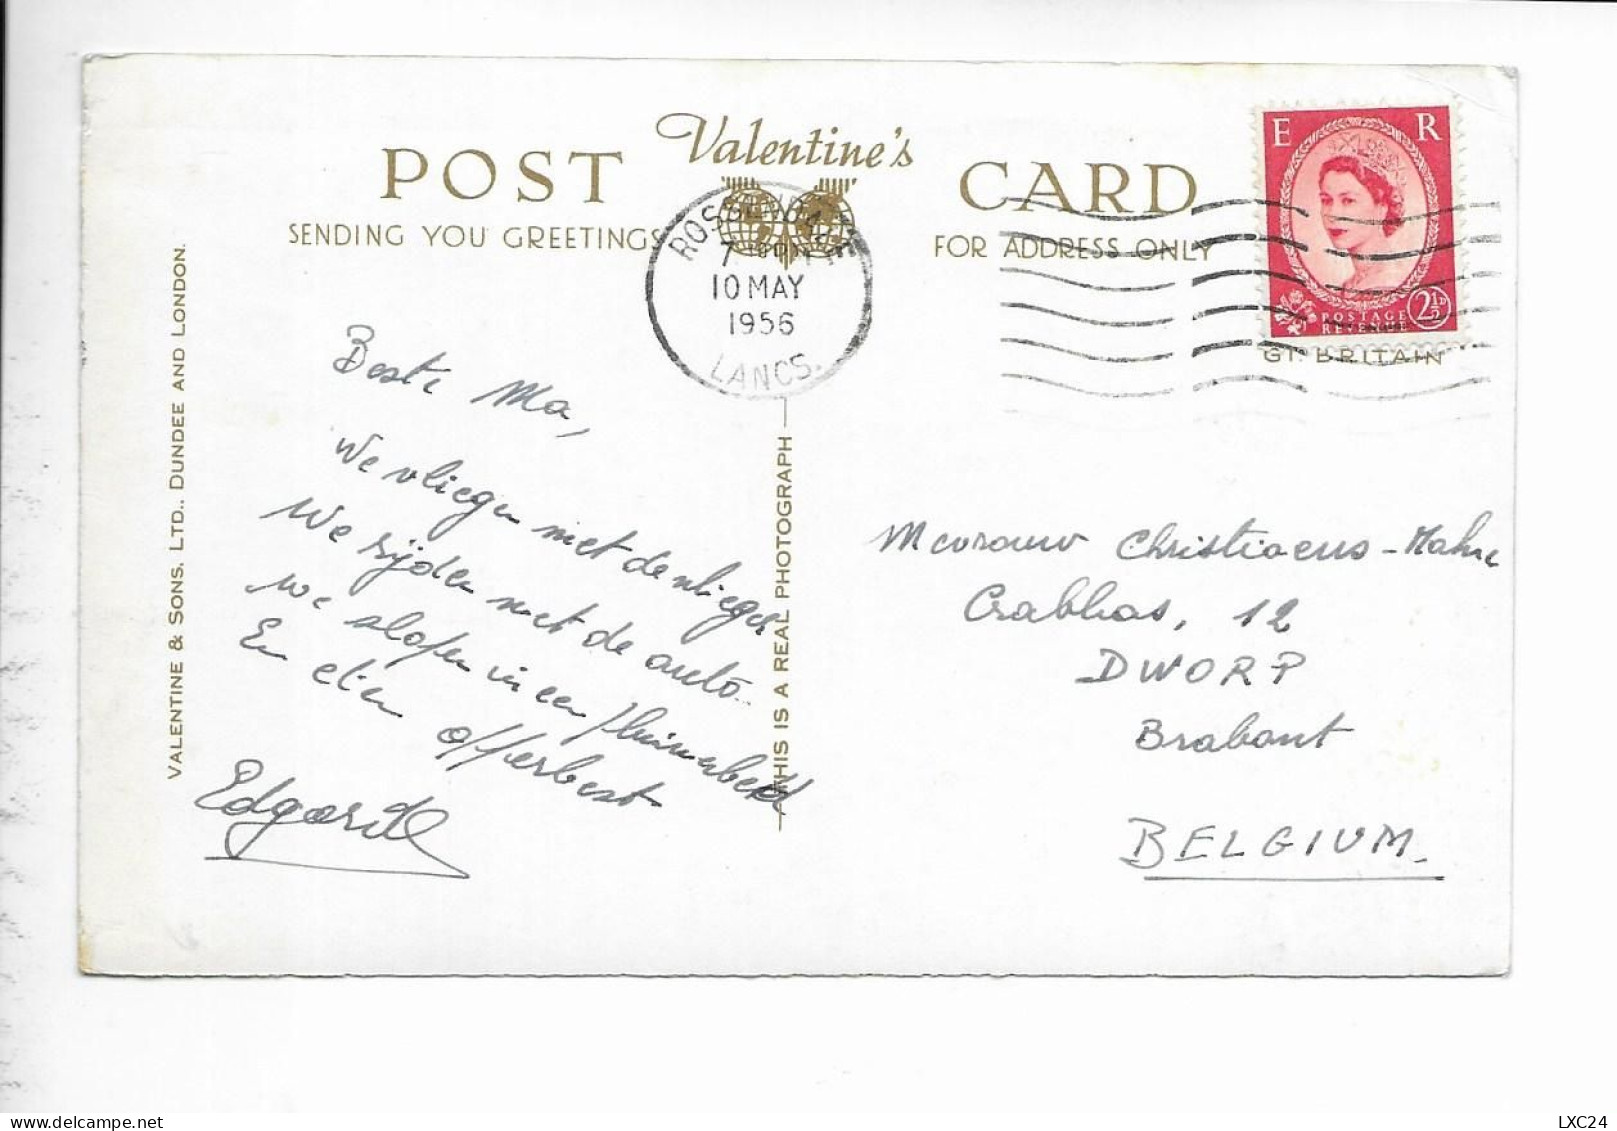 Valentine's
POST CARD
SENDING YOU GREETINGS
FOR ADDRESS ONLY
ROSSENDALE
7 PM
10 MAY
1956
LANCS.
E R
POSTAGE
REVENUE
2½D
GT. BRITAIN
VALENTINE & SONS, LTD., DUNDEE AND LONDON.
THIS IS A REAL PHOTOGRAPH
Beste Ma,
We vliegen met de vlieger
We rijden met de auto..
We slapen in een pluimenbed
En eten opperbest
Edgard
Mevrouw Christiaens-Mahe
Crabbos, 12
DWORP
Brabant
BELGIUM.
LXC24